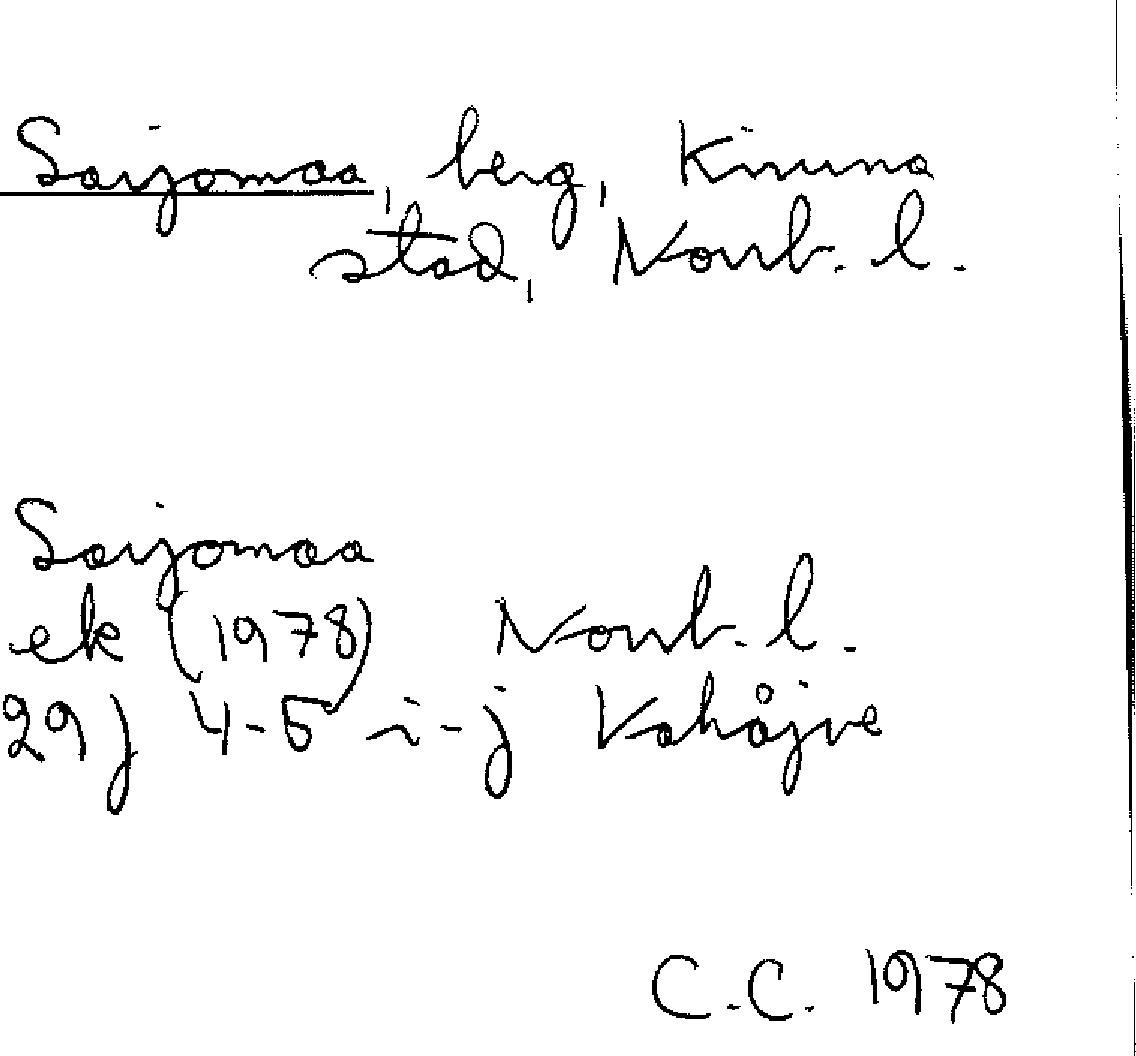 Sarjomaa, berg, Kiruna
stad, Norrb. l.
Sarjomaa
ek (1978) Norrb. l.
29 J 4-5 i-j Kahåjve
C.C. 1978